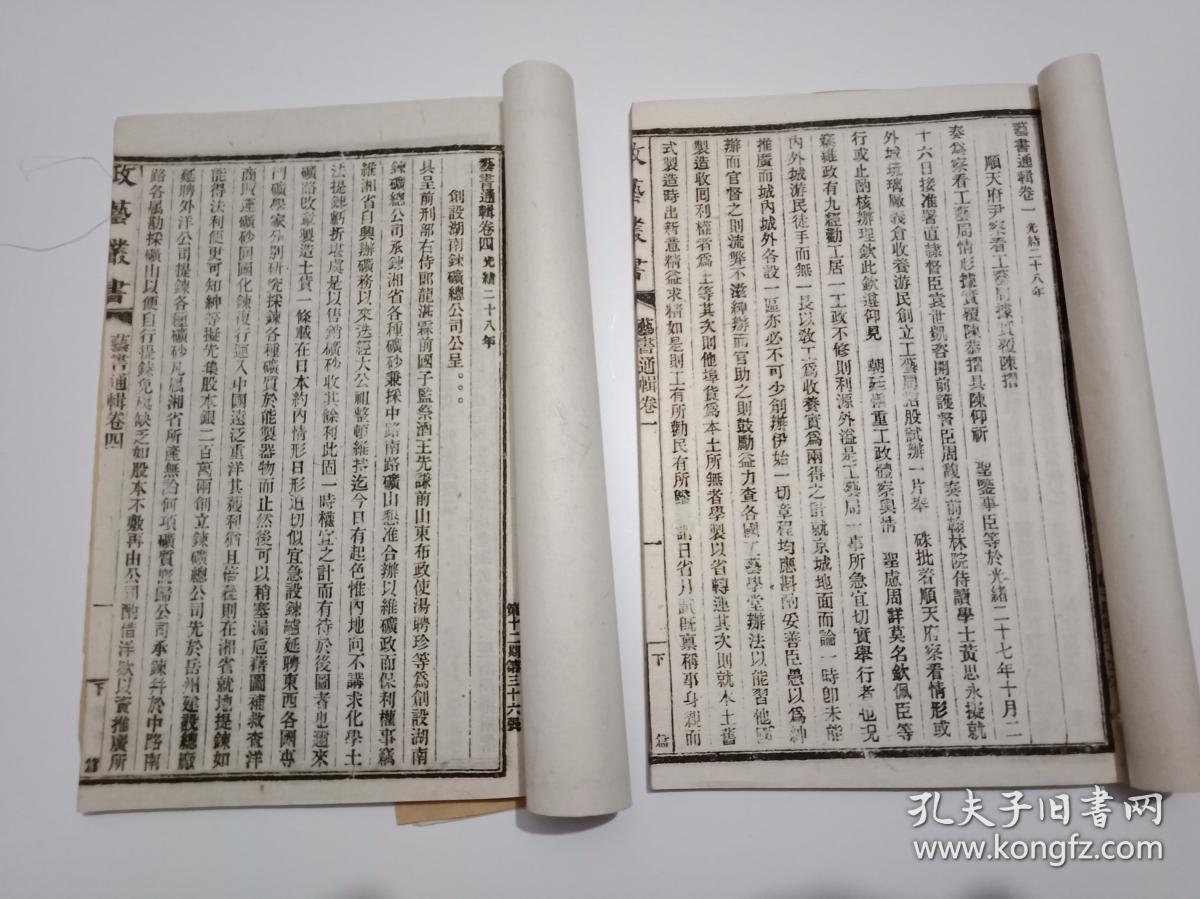 藝書通輯卷一 光緒二十八年
順天府尹察看工藝局據實覆陳摺
奏爲察看工藝局情形據實覆陳恭摺具陳仰祈 聖鑒事臣等於光緒二十七年十月二
十六日接准署直隸督臣袁世凱咨開前護督臣周馥奏前翰林院侍讀學士黃思永擬就
外城琉璃廠義倉收養游民創立工藝局招股試辦一片奉 硃批着順天府察看情形或
行或止酌核辦理欽此欽遵仰見 朝廷慎重工政體察輿情 聖慮周詳莫名欽佩臣等
竊維政有九經勸工居一工政不修則利源外溢是工藝局一事所急宜切實舉行者也況
內外城游民徒手而無一長以敎工爲收養實爲兩得之計就京城地面而論一時卽未能
推廣而城內城外各設一區亦必不可少創辦伊始一切章程均應斟酌妥善臣愚以爲紳
辦而官督之則流弊不滋紳辦而官助之則鼓勵益力查各國工藝學堂辦法以能習他國
製造收回利權者爲上等其次則他埠貨爲本土所無者學製以省轉運其次則就本土舊
式製造時出新意精益求精如是則工有所勸民有所 諺日省月試旣稟稱事身親而
政藝叢書 藝書通輯卷一 一 下 篇
第十二期第三十六號
藝書通輯卷四 光緒二十八年
創設湖南鍊礦總公司公呈
具呈前刑部右侍郎龍湛霖前國子監祭酒王先謙前山東布政使湯聘珍等爲創設湖南
鍊礦總公司承鍊湘省各種礦砂兼採中路南路礦山懇准合辦以維礦政而保利權事竊
維湘省自興辦礦務以來迭經大公祖整頓維持迄今日有起色惟內地向不講求化學土
法提鍊虧折堪虞是以售銷礦砂收其餘利此固一時權宜之計而有待於後圖者也邇來
礦路改章製造土貨一條載在日本約內情形日形迫切似宜急設鍊爐延聘東西各國專
門礦學家分別硏究採鍊各種礦質於能製器物而止然後可以稍塞漏卮藉圖補救查洋
商販運礦砂回國化鍊復行運入中國遠泛重洋其獲利猶且倍蓰則在湘省就地提鍊如
能得法利便更可知紳等擬先集股本銀二百萬兩創立鍊礦總公司先於岳州建設總廠
延聘外洋公司提鍊各種礦砂凡屬湘省所產無論何項礦質應歸公司承鍊幷於中路南
路各屬勘採礦山以便自行提鍊免虞缺乏如股本不敷再由公司酌借洋欵以資推廣所
政藝叢書 藝書通輯卷四 一 下 篇
孔夫子旧书网
www.kongfz.com